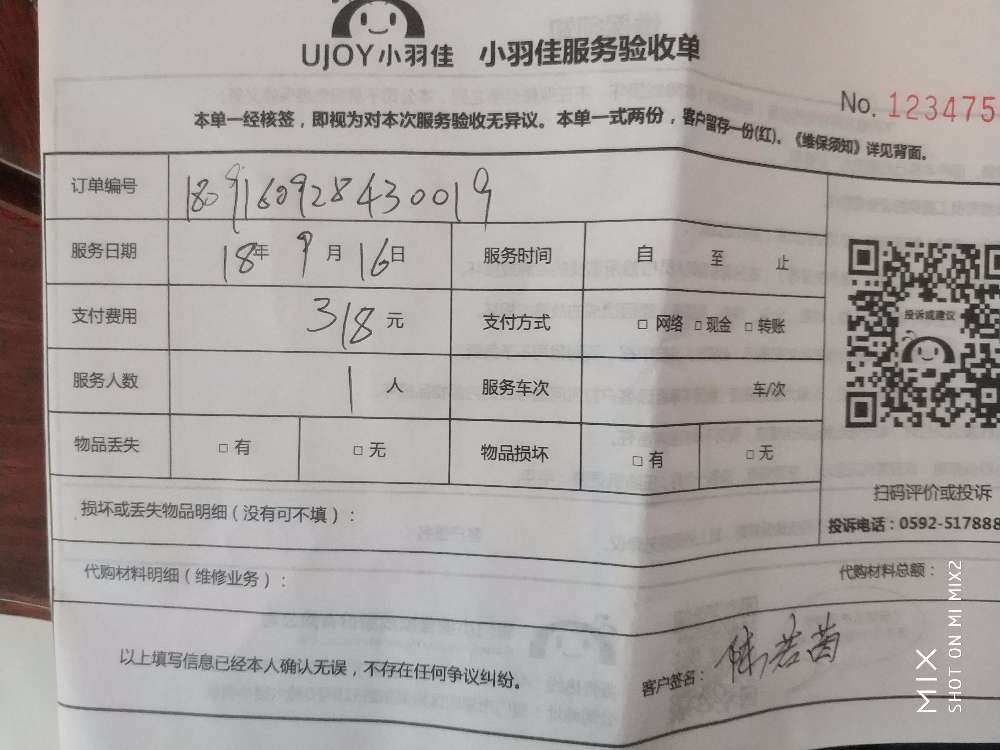 UJOY小羽佳 小羽佳服务验收单
No. 123475
本单一经核签，即视为对本次服务验收无异议。本单一式两份，客户留存一份(红)。《维保须知》详见背面。
订单编号 1809160928430019
服务日期 18年 9月 16日 服务时间 自 至 止
支付费用 318元 支付方式 □ 网络 □ 现金 □ 转账
服务人数 1人 服务车次 车/次
物品丢失 □ 有 □ 无 物品损坏 □ 有 □ 无
投诉或建议
扫码评价或投诉
投诉电话：0592-517888
损坏或丢失物品明细（没有可不填）：
代购材料明细（维修业务）： 代购材料总额：
以上填写信息已经本人确认无误，不存在任何争议纠纷。 客户签名：
MIX
SHOT ON MI MIX2